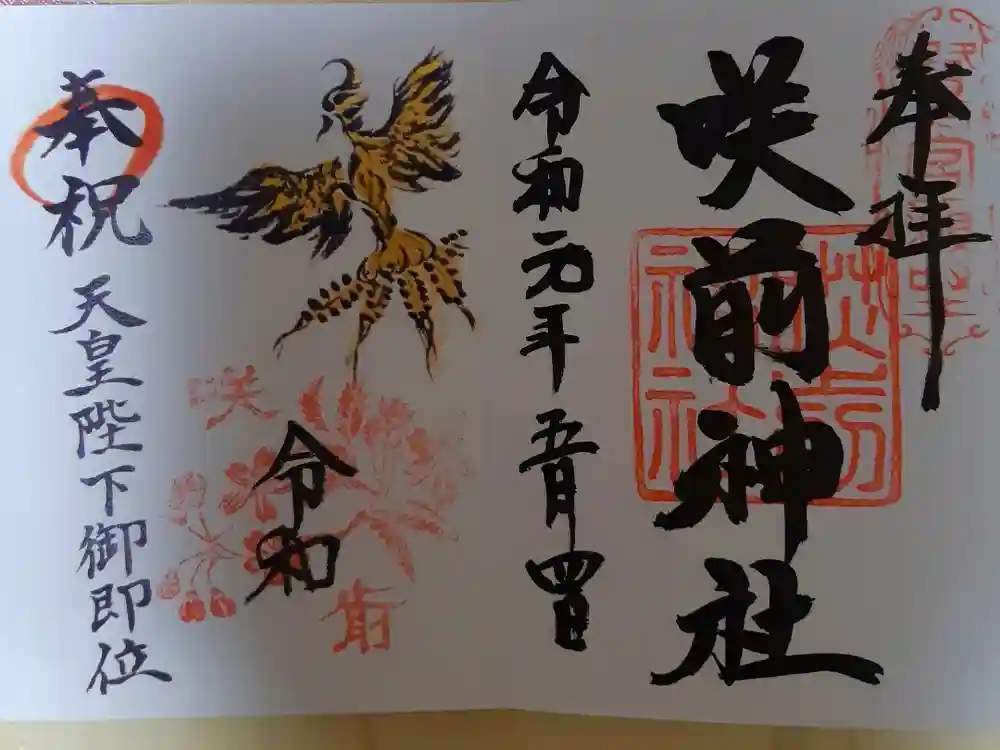 奉拝
咲前神社
令和元年五月四日
令和
咲
前
奉祝
天皇陛下御即位